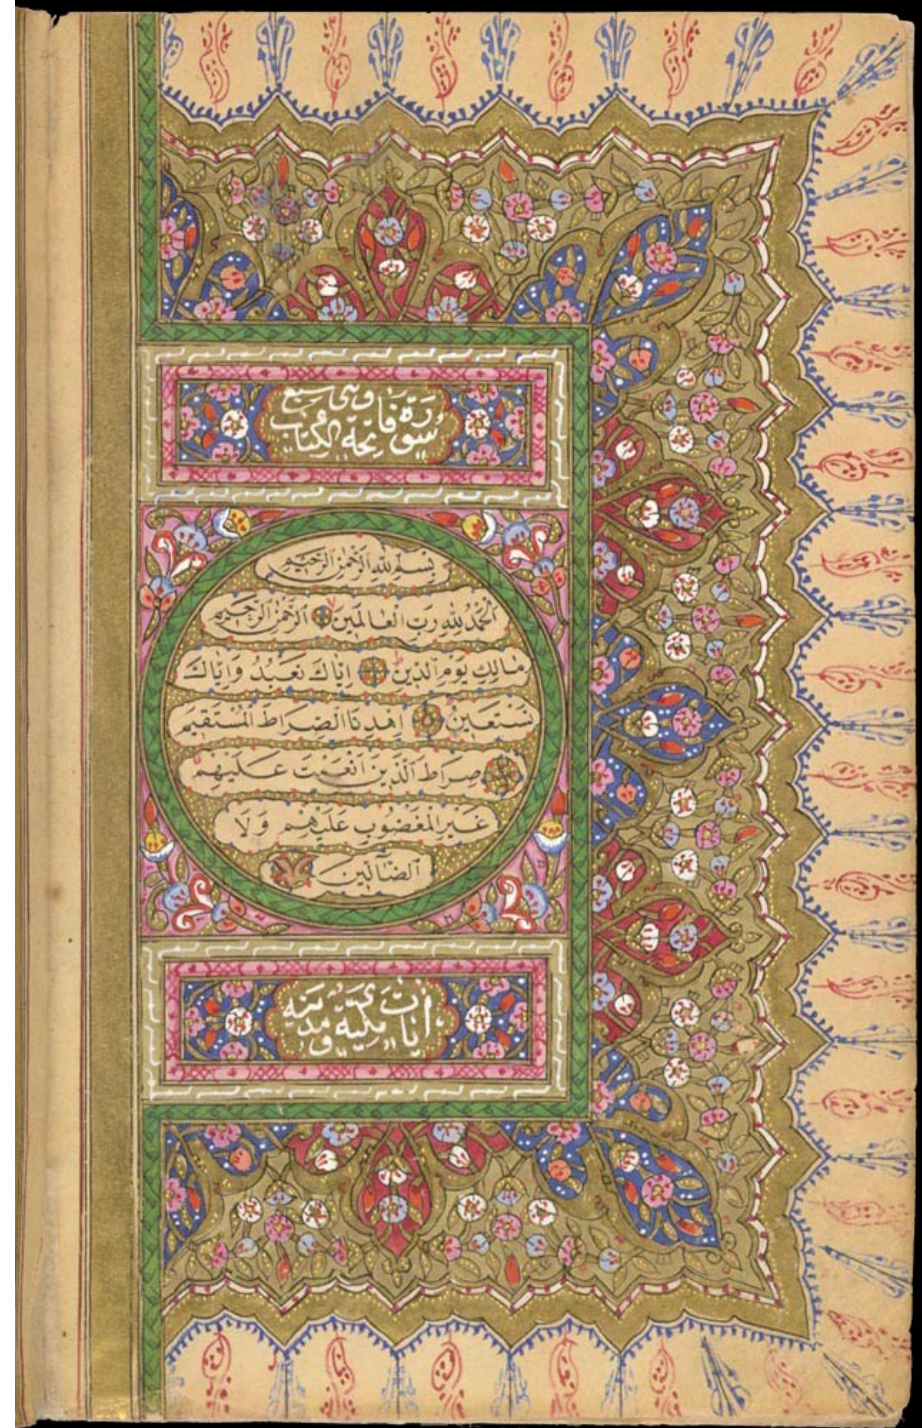 سورة فاتحة الكتاب وهى سبع
بسم الله الرحمن الرحيم
الحمد لله رب العالمين الرحمن الرحيم
مالك يوم الدين اياك نعبد واياك
نستعين اهدنا الصراط المستقيم
صراط الذين انعمت عليهم
غير المغضوب عليهم ولا
الضالين
آيات مكية ومدنية